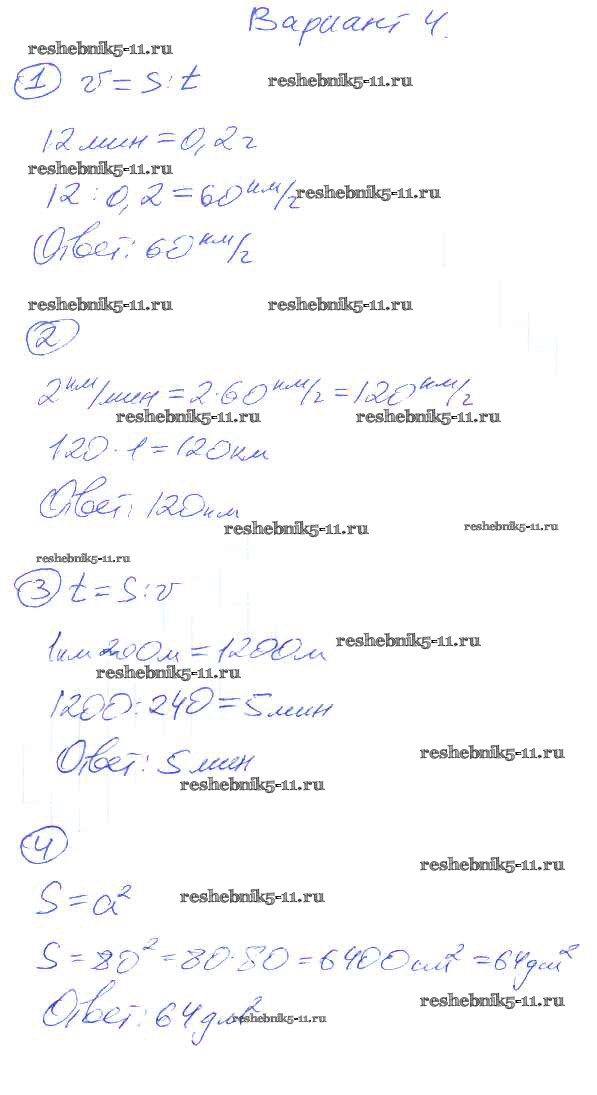 Вариант 4.
reshebnik5-11.ru
1 v = S : t reshebnik5-11.ru
12 мин = 0,2 г
reshebnik5-11.ru
12 : 0,2 = 60 км/г reshebnik5-11.ru
Ответ: 60 км/г
reshebnik5-11.ru reshebnik5-11.ru
2
2 км/мин = 2·60 км/г = 120 км/г
reshebnik5-11.ru reshebnik5-11.ru
120 · 1 = 120 км
Ответ: 120 км
reshebnik5-11.ru reshebnik5-11.ru
reshebnik5-11.ru
3 t = S : v
1 км 200 м = 1200 м reshebnik5-11.ru
reshebnik5-11.ru
1200 : 240 = 5 мин
Ответ: 5 мин reshebnik5-11.ru
reshebnik5-11.ru
4
reshebnik5-11.ru
S = a² reshebnik5-11.ru
S = 80² = 80·80 = 6400 см² = 64 дм²
Ответ: 64 дм² reshebnik5-11.ru reshebnik5-11.ru